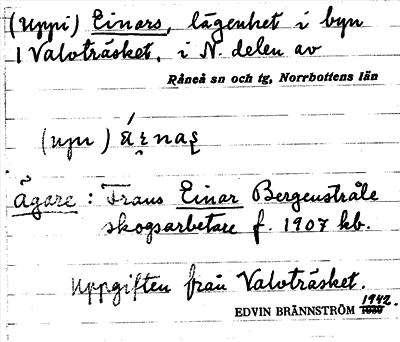 (Uppi) Einars, lägenhet i byn
1 Valvträsket, i N. delen av
Råneå sn och tg, Norrbottens län
(upı)
Ägare : Frans Einar Bergenstråle
skogsarbetare f. 1907 hb.
Uppgiften från Valvträsket.
EDVIN BRÄNNSTRÖM 1942.